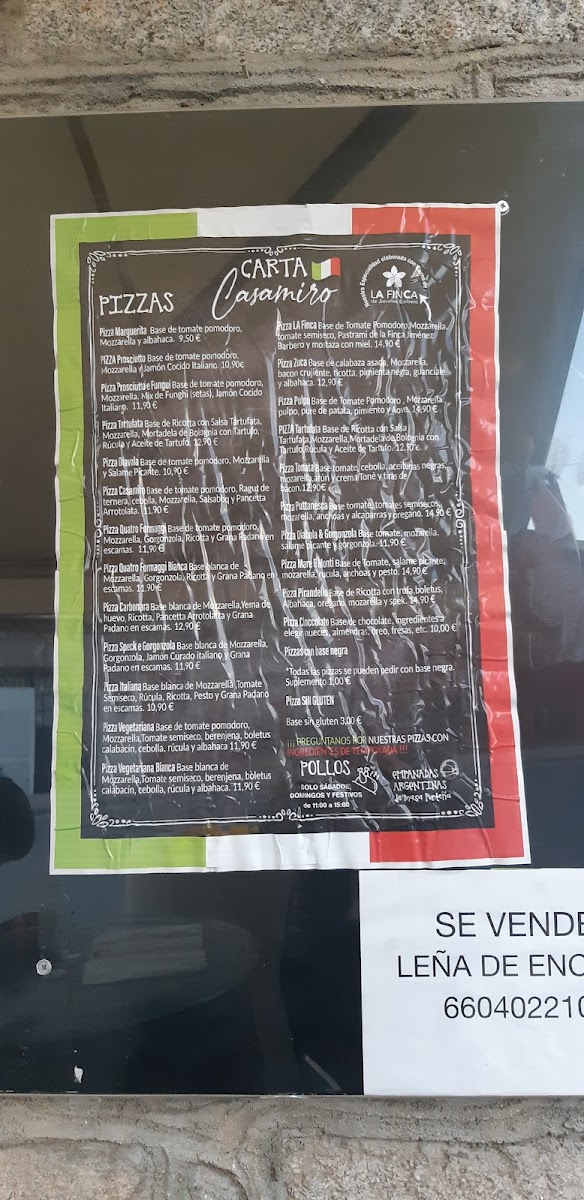 CARTA
Casamiro
Nuestra Especialidad elaborada con
LA FINCA
de Jiménez Barbero
PIZZAS
Pizza Marguerita Base de tomate pomodoro,
Mozzarella y albahaca. 9,50 €
PIZZA Prosciutto Base de tomate pomodoro,
Mozzarella y Jamón Cocido Italiano. 10,90€
Pizza Prosciutto e Fungui Base de tomate pomodoro,
Mozzarella, Mix de Funghi (setas), Jamón Cocido
Italiano. 11,90 €
Pizza Tartufata Base de Ricotta con Salsa Tartufata,
Mozzarella, Mortadela de Bologna con Tartufo,
Rúcula y Aceite de Tartufo. 12,90 €
Pizza Diavola Base de tomate pomodoro, Mozzarella
y Salame Picante. 10,90 €
Pizza Casamiro Base de tomate pomodoro, Ragut de
ternera, cebolla, Mozzarella, Salsabbq y Pancetta
Arrotolata. 11,90 €
Pizza Quatro Formangi Base de tomate pomodoro,
Mozzarella, Gorgonzola, Ricotta y Grana Padano en
escamas. 11,90 €
Pizza Quatro Formaggi Bianca Base blanca de
Mozzarella, Gorgonzola, Ricotta y Grana Padano en
escamas. 11,90€
Pizza Carbonara Base blanca de Mozzarella,Yema de
huevo, Ricotta, Pancetta Arrotolatta y Grana
Padano en escamas. 12,90€
Pizza Speck e Gorgonzola Base blanca de Mozzarella,
Gorgonzola, Jamón Curado italiano y Grana
Padano en escamas. 11,90 €
Pizza Italiana Base blanca de Mozzarella,Tomate
Semiseco, Rúcula, Ricotta, Pesto y Grana Padano
en escamas. 10,90 €
Pizza Vegetariana Base de tomate pomodoro,
Mozzarella,Tomate semiseco, berenjena, boletus
calabacín, cebolla, rúcula y albahaca 11,90 €
Pizza Vegetariana Bianca Base blanca de
Mozzarella,Tomate semiseco, berenjena, boletus
calabacín, cebolla, rúcula y albahaca. 11,90 €
Pizza LA Finca Base de Tomate Pomodoro,Mozzarella,
Tomate semiseco, Pastrami de la Finca Jiménez
Barbero y mostaza con miel. 14,90 €
Pizza Zuca Base de calabaza asada, Mozzarella,
bacon crujiente, ricotta, pimienta negra, guanciale
y albahaca. 12,90 €
Pizza Pulpo Base de Tomate Pomodoro , Mozzarella,
pulpo, pure de patata, pimiento y Aove. 14,90 €
PIZZA Tartufata Base de Ricotta con Salsa
Tartufata,Mozzarella,Mortadela de Bologna con
Tartufo,Rúcula y Aceite de Tartufo. 12,90 €.
Pizza Tonata Base tomate, cebolla, aceitunas negras,
mozarella,atún y crema Toné y tiras de
bacon.12,90€
Pizza Puttanesca Base tomate,tomates semisecos,
mozarella, anchoas y alcaparras y oregano. 14,90 €
Pizza Diabola & Gorgonzola Base tomate, mozarella,
salame picante y gorgonzola. 11,90 €
Pizza Mare E Monti Base de Tomate, salame picante,
mozarella, rucula, anchoas y pesto. 14,90 €
Pizza Pirandello Base de Ricotta con trufa, boletus,
Albahaca, oregano, mozarella y spek. 14,90 €
Pizza Cioccolato Base de chocolate, ingredientes a
elegir nueces, almendras, oreo, fresas, etc. 10,00 €
Pizzas con base negra
*Todas las pizzas se pueden pedir con base negra.
Suplemento 1,00 €
Pizza SIN GLUTEN
Base sin gluten 3,00 €
¡¡¡ PREGUNTANOS POR NUESTRAS PIZZAS CON
INGREDIENTES DE TEMPORADA !!!
POLLOS
SOLO SÁBADOS,
DOMINGOS Y FESTIVOS
de 11:00 a 15:00
EMPANADAS
ARGENTINAS
SE VENDE
LEÑA DE ENC
660402210